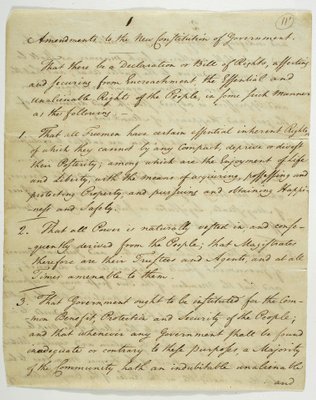 1
Amendments to the New Constitution of Government.
That there be a Declaration or Bill of Rights, asserting
and securing from Encroachment the Essential and
unalienable Rights of the People, in some such Manner
as the following. —
1. That all Freemen have certain essential inherent Rights,
of which they cannot by any Compact, deprive or divest
their Posterity; among which are the Enjoyment of Life
and Liberty, with the means of acquiring, possessing and
protecting Property, and pursuing and obtaining Happi-
ness and Safety.
2. That all Power is naturally vested in and conse-
quently derived from the People; that Magistrates
therefore are their Trustees and Agents, and at all
Times amenable to them.
3. That Government ought to be instituted for the Com-
mon Benefit, Protection and Security of the People;
and that whenever any Government shall be found
inadequate or contrary to these purposes, a Majority
of the Community hath an indubitable unalienable
and